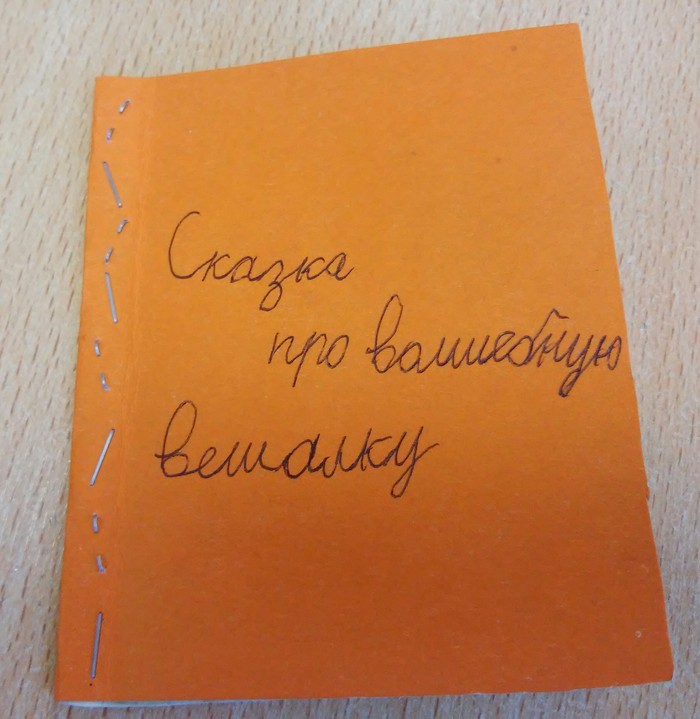 Сказка
про волшебную
вешалку